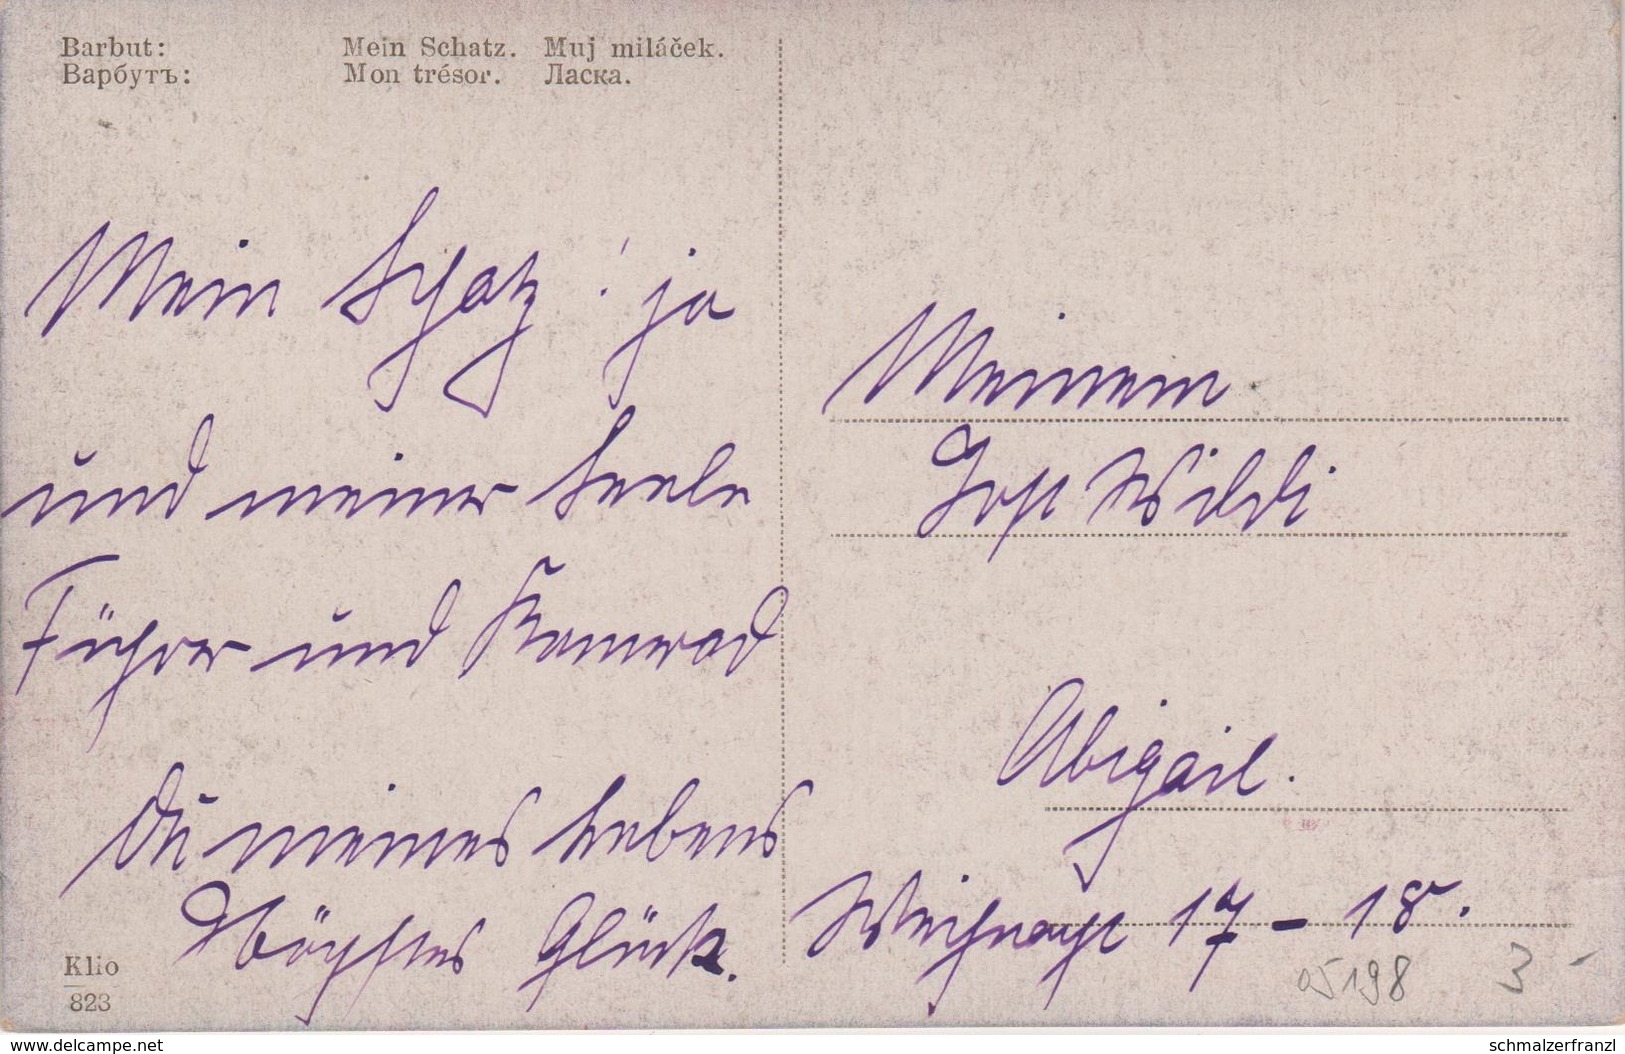 Barbut: Mein Schatz. Muj miláček.
Варбутъ: Mon trésor. Ласка.
Mein Schatz! ja
und meiner Seele
Führer und Kamerad
Du meines Lebens
Höchstes Glück.
Meinem
Jost Wildi
Abigail.
Weihnacht 17-18.
05198 3-
Klio
823
www.delcampe.net
schmalzerfranzl